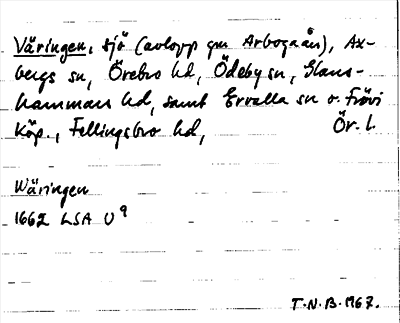 Väringen, sjö (avlopp gm Arbogaån), Ax-
bergs sn, Örebro hd, Ödeby sn, Glans-
hammars hd, samt Ervalla sn o. Frövi
köp., Fellingsbro hd, Ör. l.
Wäringen
1662 LSA U 9
T.N.B. 1967.